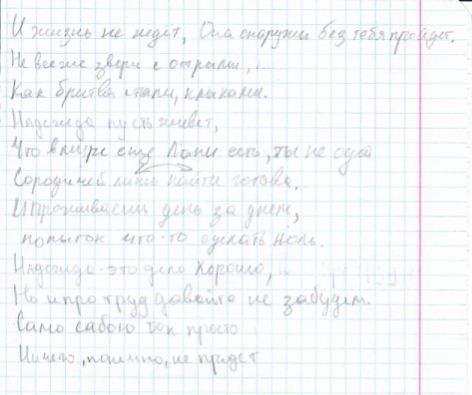 И жизнь не ждёт, Она снаружи без тебя пройдет.
Не все же звери с острыми,
Как бритва стали, клыками.
Надежда пусть живет,
Что в мире еще Лани есть, ты не одна
Сородичей лишь найти готова.
И проживаешь день за днем,
попыток что-то сделать ноль.
Надежда - это дело хорошо, и
Но и про труд давайте не забудем.
Само сабою так просто
Ничего, понятно, не придет